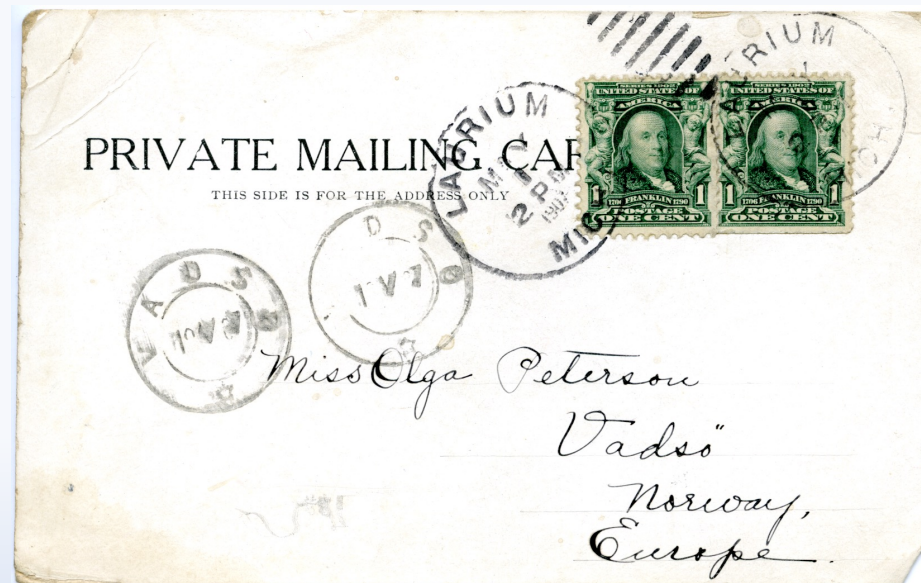 PRIVATE MAILING CAR
THIS SIDE IS FOR THE ADDRESS ONLY
LAURIUM
MAY
1
2 PM
1907
MIC
LAURIUM
MICH
SERIES 1902
UNITED STATES OF
AMERICA
1 1706 FRANKLIN 1790 1
POSTAGE
ONE CENT
SERIES 1902
UNITED STATES OF
AMERICA
1 1706 FRANKLIN 1790 1
POSTAGE
ONE CENT
VADSØ
V 7
DSØ
V 7
Miss Olga Peterson
Vadsö
Norway,
Europe.